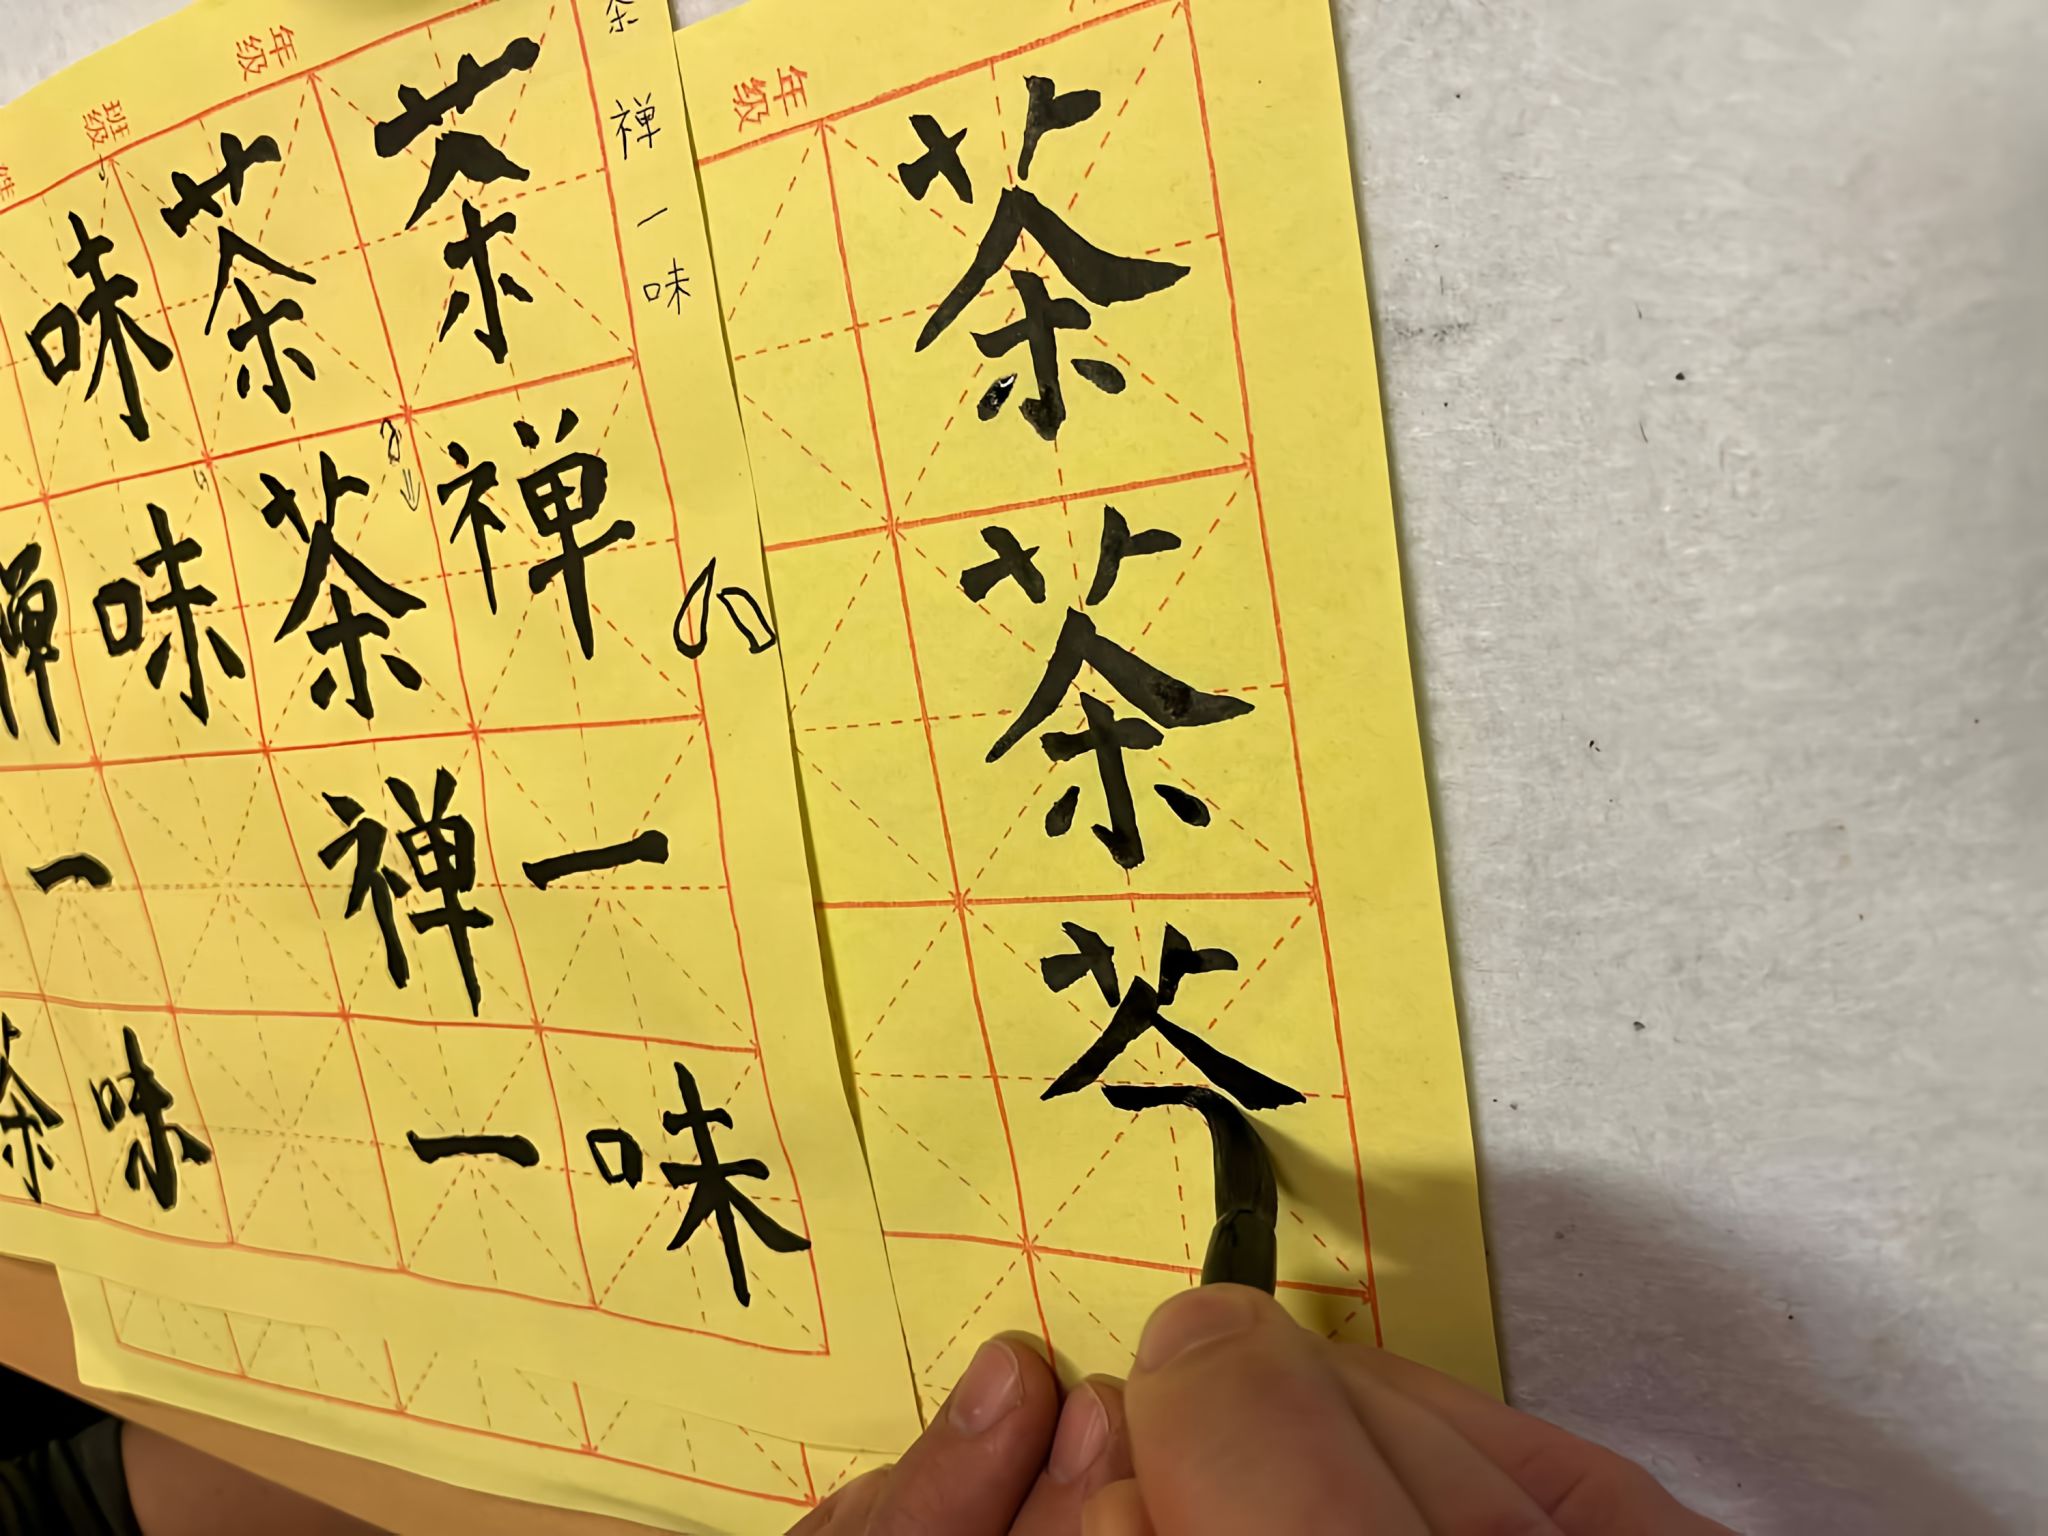 年级
茶茶
茶禅一味
年级
班级
茶禅一味
茶茶禅一
味味
禅一味
茶